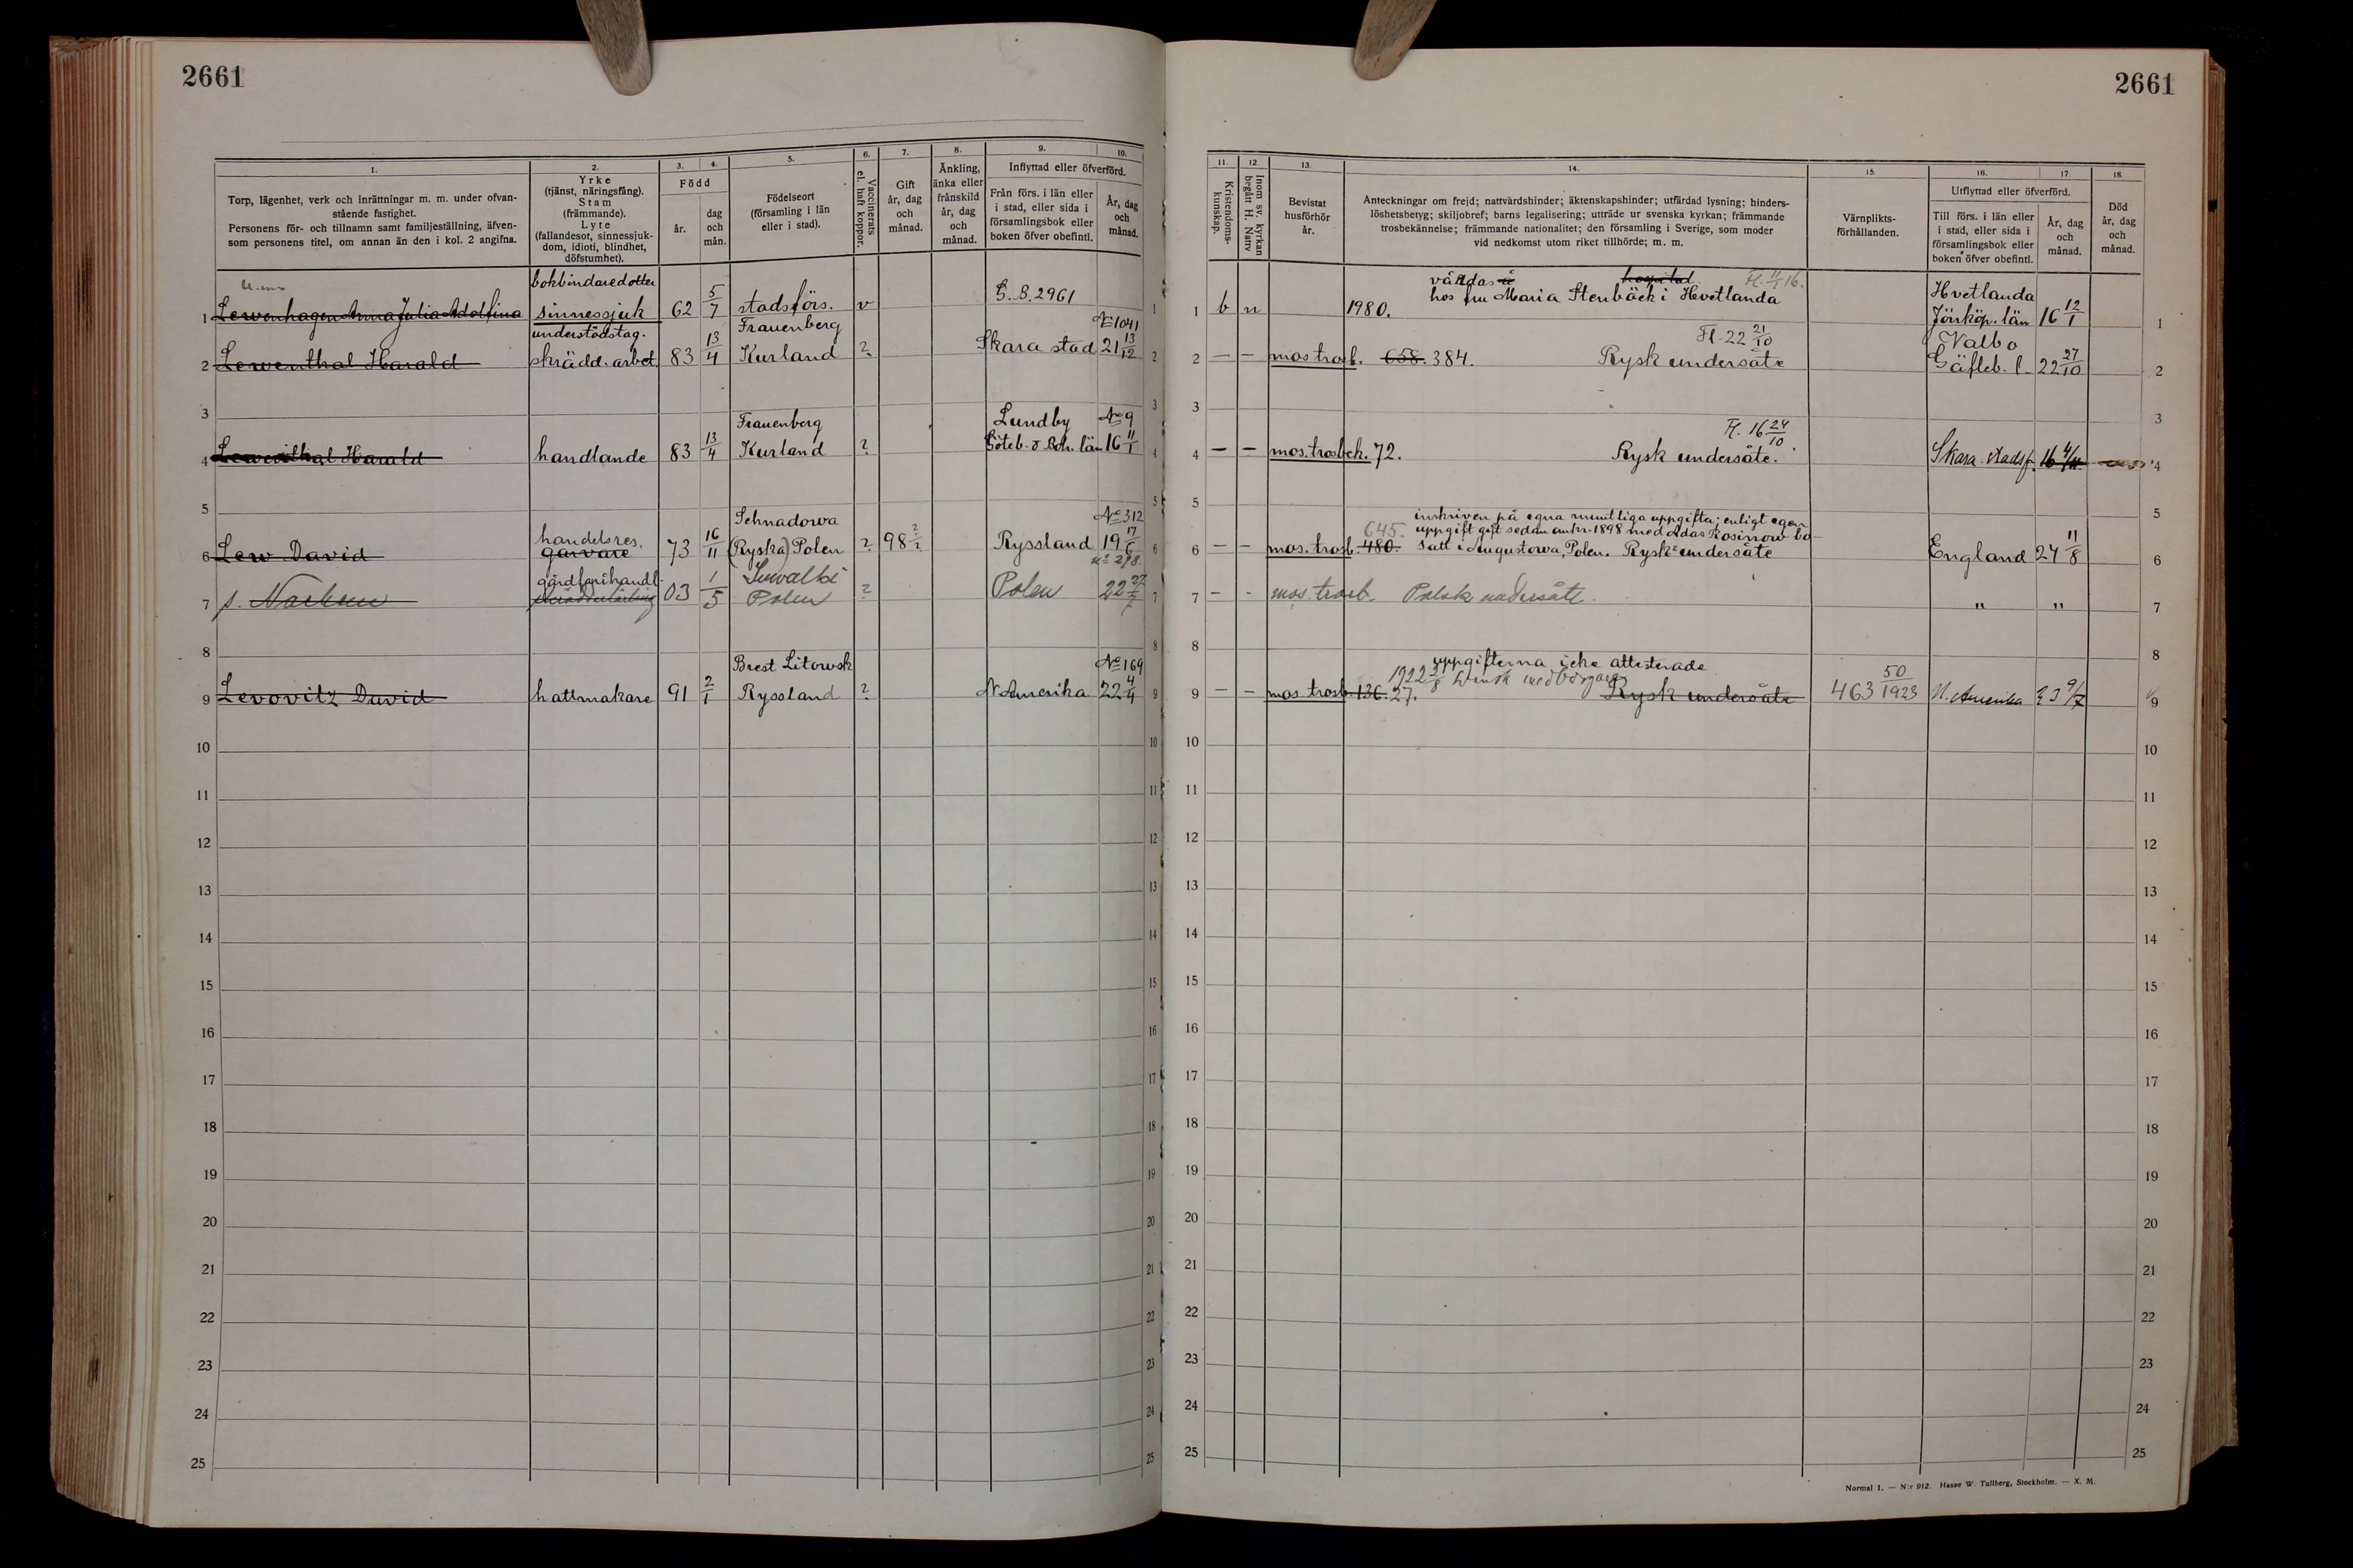 2661
2661
1.
Torp, lägenhet, verk och inrättningar m. m. under ofvan-
stående fastighet.
Personens för- och tillnamn samt familjeställning, äfven-
som personens titel, om annan än den i kol. 2 angifna.
2.
Yrke
(tjänst, näringsfång).
Stam
(främmande).
Lyte
(fallandesot, sinnessjuk-
dom, idioti, blindhet,
döfstumhet).
3. 4.
Född
år.
dag
och
mån.
5.
Födelseort
(församling i län
eller i stad).
6.
Vaccinerats
el. haft koppor.
7.
Gift
år, dag
och
månad.
8.
Änkling,
änka eller
frånskild
år, dag
och
månad.
9. 10.
Inflyttad eller öfverförd.
Från förs. i län eller
i stad, eller sida i
församlingsbok eller
boken öfver obefintl.
År, dag
och
månad.
11.
Kristendoms-
kunskap.
12
Inom sv. kyrkan
begått H. Nattv
13.
Bevistat
husförhör
år.
14.
Anteckningar om frejd; nattvärdshinder; äktenskapshinder; utfärdad lysning; hinders-
löshetsbetyg; skiljobref; barns legalisering; utträde ur svenska kyrkan; främmande
trosbekännelse; främmande nationalitet; den församling i Sverige, som moder
vid nedkomst utom riket tillhörde; m. m.
15.
Värnplikts-
förhållanden.
16. 17.
Utflyttad eller öfverförd.
Till förs. i län eller
i stad, eller sida i
församlingsbok eller
boken öfver obefintl.
År, dag
och
månad.
18.
Död
år, dag
och
månad.
bokbindaredotter
1 Lewenhagen Anna Julia Adolfina sinnessjuk 62 5/7 stadsförs. v G. B. 2961 1
understödstag.
Frauenberg No 1041
2 Lewenthal Harald skrädd. arbet. 83 13/4 Kurland ? Skara stad 21 13/12 2
3 3
Frauenberg Lundby No 9
4 Lewenthal Harald handlande 83 13/4 Kurland ? Göteb. o Boh. län 16 11/1 4
5 5
Schnadowa No 312
handelsres.
6 Lew David garvare 73 16/11 (Ryska) Polen ? 98 2/2 Ryssland 19 17/6 6
gårdfarihandl. Suwalki
7 s. Nachum 03 1/5 Polen ? Polen 22 27/7 7
8 8
Brest Litowsk No 169
9 Levovitz David hattmakare 91 2/1 Ryssland ? N Amerika 22 4/4 9
10 10
11 11
12 12
13 13
14 14
15 15
16 16
17 17
18 18
19 19
20 20
21 21
22 22
23 23
24 24
25 25
vårdas å hospital
1 b n 1980. hos fru Maria Stenbäck i Hvetlanda Hvetlanda
Jönköp. län 16 12/1 1
Fl. 22 21/10 Valbo
2 — — mos trosb. 658. 384. Rysk undersåte Gäfleb. l. 22 27/10 2
3 3
Fl. 16 24/10
4 — — mos. trosbek. 72. Rysk undersåte. Skara stadsf. 16 4/11 4
5 5
inskriven på egna muntliga uppgifter; enligt egen
645. uppgift gift sedan 1898 med Adas Rosinow bo-
6 — — mos. trosb. 480. satt i Augustowa, Polen. Rysk undersåte England 24 11/8 6
7 — - mos. trosb. Polsk undersåte. " " 7
8 8
uppgifterna icke attesterade
medborgare
9 — — mos. trosb. 136. 27. Rysk undersåte 463 50/1923 N. Amerika 23 9/7 9
10 10
11 11
12 12
13 13
14 14
15 15
16 16
17 17
18 18
19 19
20 20
21 21
22 22
23 23
24 24
25 25
Normal 1. — N:r 912. Hasse W. Tullberg, Stockholm. — X. M.